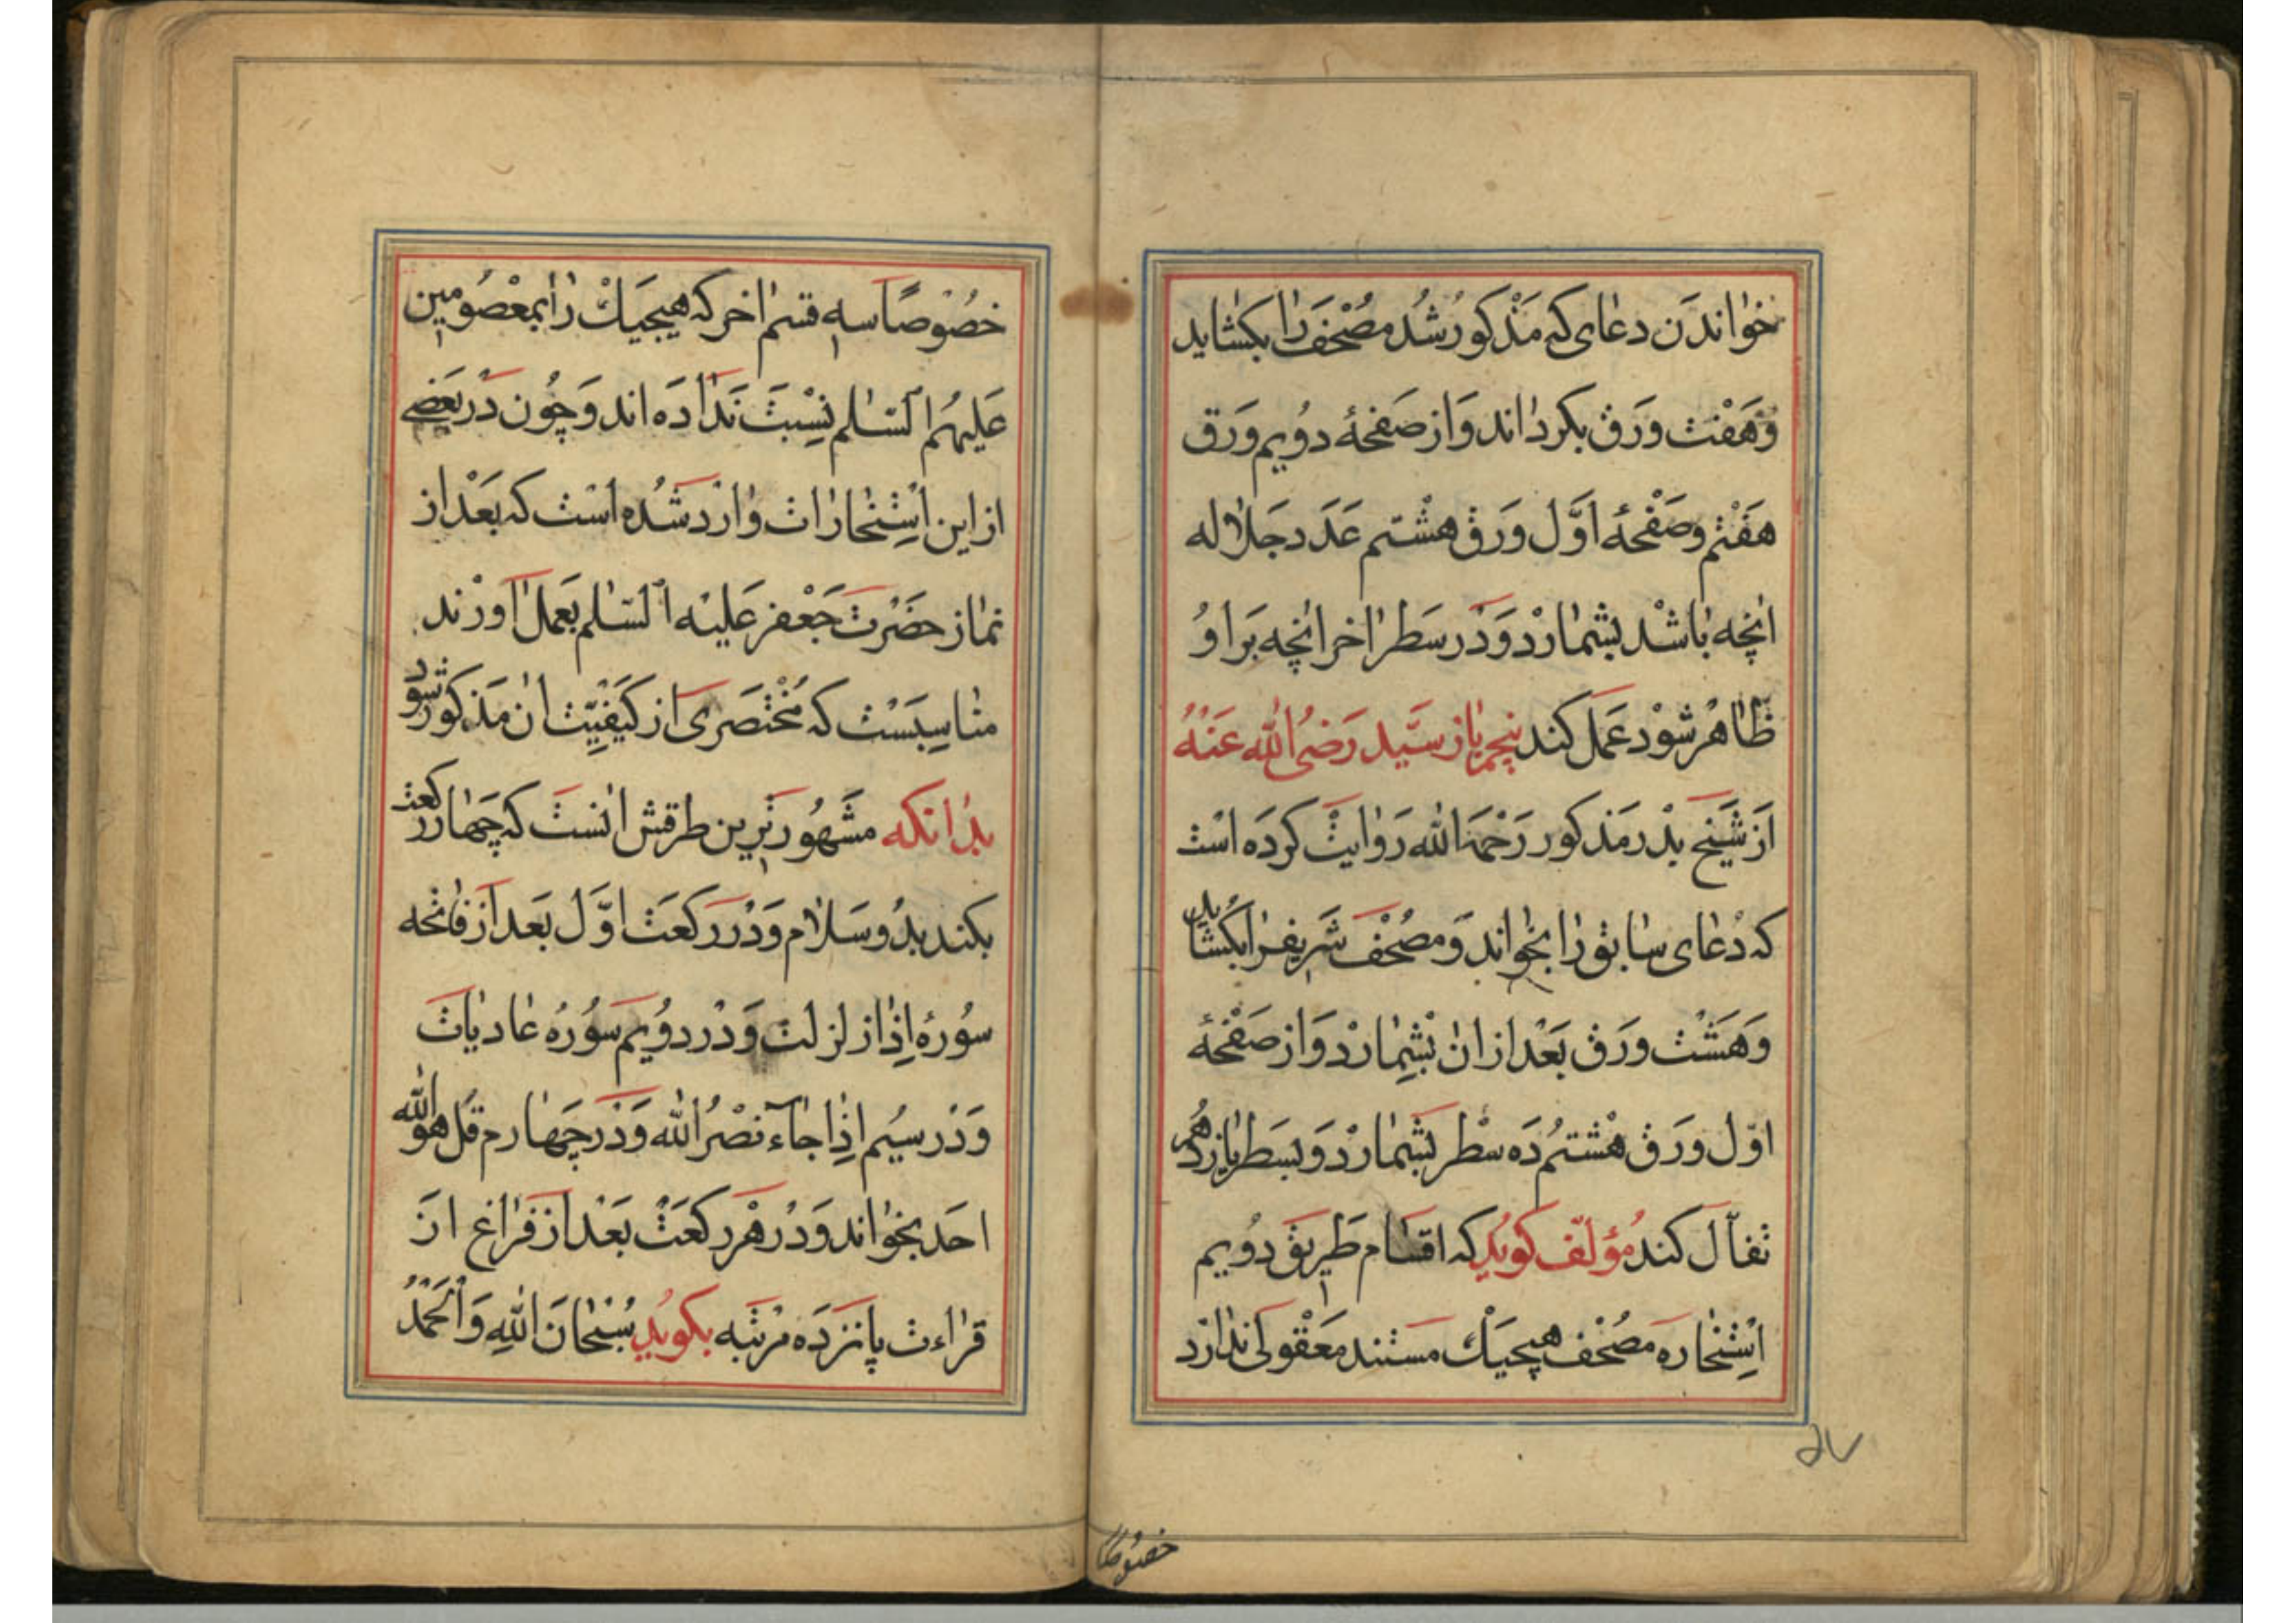 خواندن دعای که مذکور شد مصحف را بکشاید
و هفت ورق بکرداند و از صفحهٔ دویم ورق
هفتم و صفحهٔ اوّل ورق هشتم عدد جلاله
انچه باشد بشمارد و در سطر اخر انچه بر او
ظاهر شود عمل کند پنجم باز سیّد رضی الله عنه
از شیخ بدر مذکور رحمه الله روایت کرده است
که دعای سابق را بخواند و مصحف شریفرا بکشاید
و هشت ورق بعد از ان بشمارد و از صفحهٔ
اوّل ورق هشتم ده سطر بشمارد و بسطر یازدهم
تفأل کند مؤلّف کوید که اقسام طریق دویم
استخاره مصحف هیچیک مستند معقولی ندارد
۵۷
خصوصاً
خصوصاً سه قسم اخر که هیچیک را بمعصومین
علیهم السّلم نسبت نداده اند و چون در بعضی
از این استخارات وارد شده است که بعد از
نماز حضرت جعفر علیه السّلم بعمل اورند
مناسبست که مختصری از کیفیّت ان مذکور شود
بدانکه مشهورترین طرقش انست که چهار رکعت
بکند بدو سلام و در رکعت اوّل بعد از فاتحه
سورهٔ إذا زلزلت و در دویم سورهٔ عادیات
و در سیم إذا جاء نصر الله و در چهارم قل هو الله
احد بخواند و در هر رکعت بعد از فراغ از
قراءت پانزده مرتبه بکوید سُبْحَانَ اللهِ وَالْحَمْدُ